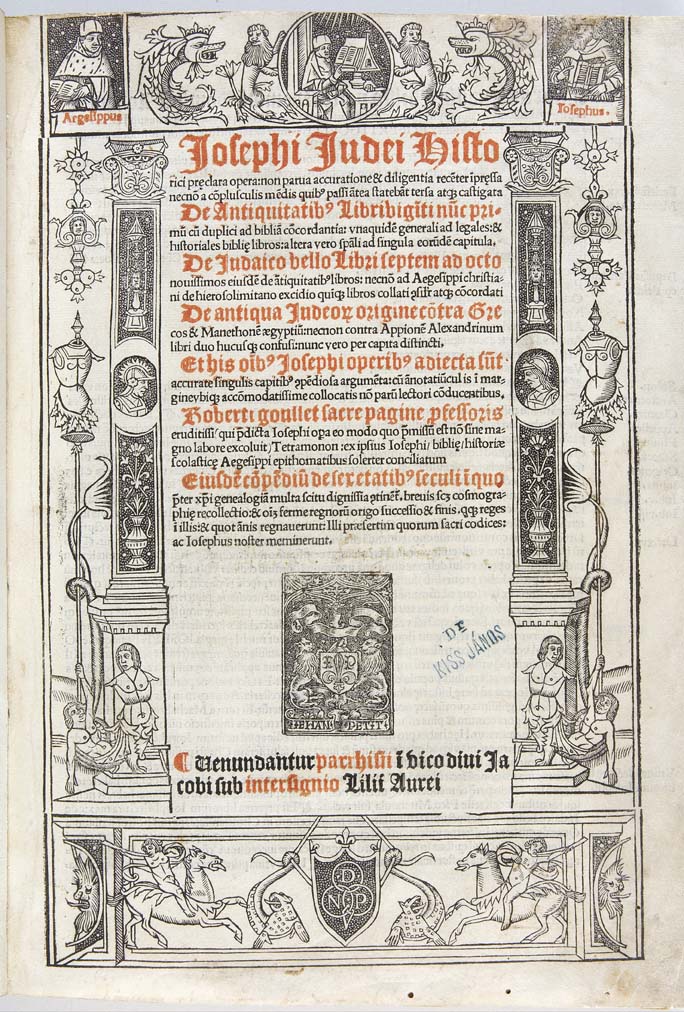 Aegesippus
Iosephus.
Josephi Judei Histo
rici pręclara opera: non parua accuratione & diligentia recẽter ĩpręssa
necnõ a cõplusculis mẽdis quibꝰ passĩ ãtea statebãt tersa atqꝫ castigata
De Antiquitatibꝰ Libri viginti nũc pri-
mũ cũ duplici ad bibliã cõcordantia: vnaquidẽ generali ad legales: &
historiales biblię libros: altera vero spãli ad singula eorũdẽ capitula,
De Judaico bello Libri septem ad octo
nouissimos eiusdẽ de ãtiquitatibꝰ libros: necnõ ad Aegesippi christia-
ni de hierosolimitano excidio quiqꝫ libros collati atqꝫ cõcordati
De antiqua Judeoꝝ origine cõtra Gre
cos & Manethonẽ ægyptiũ: necnon contra Appionẽ Alexandrinum
libri duo hucusqꝫ confusi: nunc vero per capita distincti,
Et his oĩbꝰ Josephi operibꝰ adiecta sũt
accurate singulis capitibꝰ ꝯpẽdiosa argumẽta: cũ ãnotatiũculis ĩ mar-
gineybiqꝫ accõmodatissime collocatis nõ parũ lectori cõducẽtibus,
Roberti goullet sacre pagine ꝓfessoris
eruditissi/ qui p̃dicta Iosephi opa eo modo quo p̃missũ est nõ sine ma-
gno labore excoluit/ Tetramonon: ex ipsius Iosephi/ biblię/ historiæ
scolasticę Aegesippi epithomatibus solerter conciliatum
Eiusdẽ cõpẽdiũ de sex etatibꝰ seculi ĩ quo
p̃ter xp̃i genealogiã multa scitu dignissĩa ꝑtinẽt̃. breuis scꝫ cosmogra-
phię recollectio: & oĩʒ ferme regnorũ origo successio & finis. qqꝫ reges
ĩ illis: & quot ãnis regnauerunt: Illi præsertim quorum sacri codices:
ac Iosephus noster meminerunt.
I P
IEHAN PETIT
DE
KISS JÁNOS
¶ Uenundantur parrhisii ĩ vico diui Ja
cobi sub intersignio Lilii Aurei
D
N P